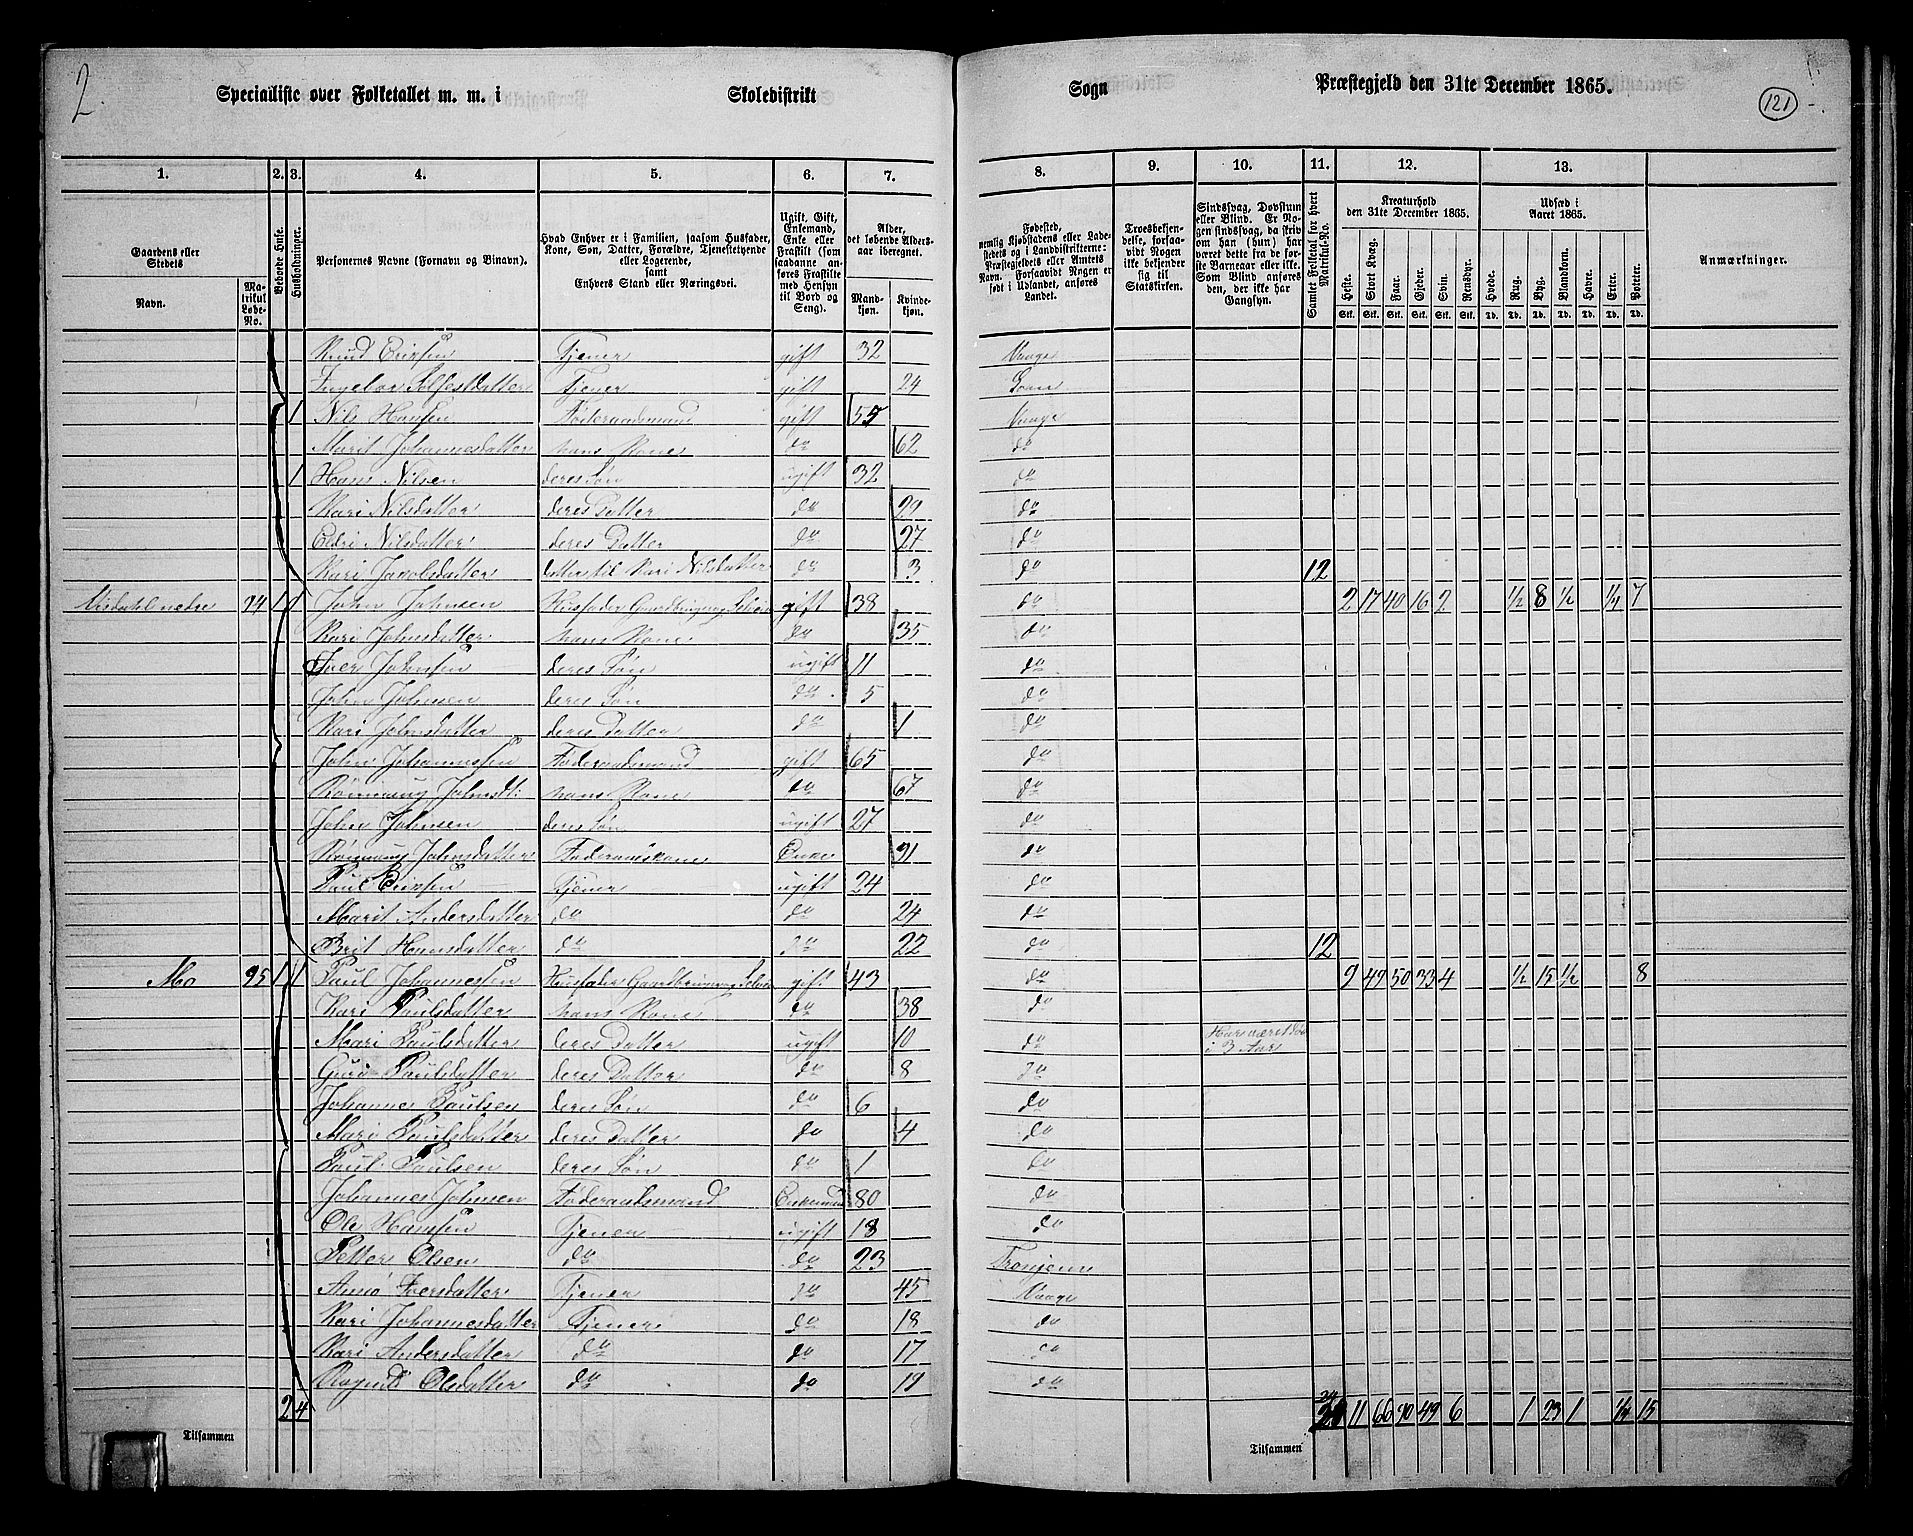 2
Specialliste over Folketallet m. m. i Skoledistrikt Sogn Præstegjeld den 31te December 1865.
121
1. 2. 3. 4. 5. 6. 7. 8. 9. 10. 11. 12. 13.
Gaardens eller Stedets
Navn.
Matrikul Løbe-No.
Beboede Huse.
Husholdninger.
Personernes Navne (Fornavn og Binavn).
Hvad Enhver er i Familien, saasom Husfader, Kone, Søn, Datter, Forældre, Tjenestetyende eller Logerende, samt Enhvers Stand eller Næringsvei.
Ugift, Gift, Enkemand, Enke eller Fraskilt (som saadanne anføres Fraskilte med Hensyn til Bord og Seng).
Alder, det løbende Aldersaar iberegnet.
Mandkjøn.
Kvindekjøn.
Fødested, nemlig Kjøbstadens eller Ladestedets og i Landdistrikterne: Præstegjeldets eller Amtets Navn. Forsaavidt Nogen er født i Udlandet, anføres Landet.
Troesbekjendelse, forsaavidt Nogen ikke bekjender sig til Statskirken.
Sindssvag, Døvstum eller Blind. Er Nogen sindssvag, da skriv om han (hun) har været dette fra de første Barneaar eller ikke. Som Blind anføres den, der ikke har Gangsyn.
Samlet Folketal for hvert Matrikul-No.
Kreaturhold den 31te December 1865.
Heste. Stort Kvæg. Faar. Gjeder. Svin. Rensdyr.
Stk. Stk. Stk. Stk. Stk. Stk.
Udsæd i Aaret 1865.
Hvede. Rug. Byg. Blandkorn. Havre. Erter. Poteter.
Td. Td. Td. Td. Td. Td. Td.
Anmærkninger.
Knud Eriksen Tjener gift 32 Vaage
Ingebor Solfestdatter Tjener gift 24
1 Nils Hansen Føderaadsmand gift 55 Vaage
Marit Johannesdatter hans Kone do 62 do
1 Hans Nilsen deres Søn ugift 32 do
Kari Nilsdatter deres Datter do 29 do
Eldri Nilsdatter deres Datter do 27 do
Kari Jacobsdatter datter til Kari Nilsdatter do 3 do 12
nedre 94 1 1 John Johnsen Husfader Gaardbruger Selveier gift 38 do 2 17 40 16 2 1/2 8 1/2 1/4 7
Kari Johnsdatter hans Kone do 35 do
Iver Johnsen deres Søn ugift 11 do
John Johnsen deres Søn do 5 do
Kari Johnsdatter deres Datter do 1 do
John Johannessen Føderaadsmand gift 65 do
Rønnaug Johnsdt: hans Kone do 67 do
John Johnsen deres Søn ugift 27 do
Rønnaug Johnsdatter Føderaadskone Enke 91 do
Paul Eriksen Tjener ugift 24 do
Marit Andersdatter do do 24 do
Brit Hansdatter do do 22 do 12
Mo 95 1 1 Paul Johannessen Husfader Gaardbruger Selveier gift 43 do 9 49 50 33 4 1/2 15 1/2 8
Kari Paulsdatter hans Kone do 38 do
Mari Paulsdatter deres Datter ugift 10 do Har været i 3 Aar
Guro Paulsdatter deres Datter do 8 do
Johannes Paulsen deres Søn do 6 do
Mari Paulsdatter deres Datter do 4 do
Paul Paulsen deres Søn do 1 do
Johannes Johnsen Føderaadsmand Enkemand 80 do
Ole Hansen Tjener ugift 18 do
Petter Olsen do do 23
Anne Iversdatter Tjener do 45 Vaage
Kari Johannesdatter Tjener do 18 do
Kari Andersdatter do do 17 do
Olsdatter do do 19 do
2 4 11 66 90 49 6 1 23 1 1/4 15
Tilsammen Tilsammen